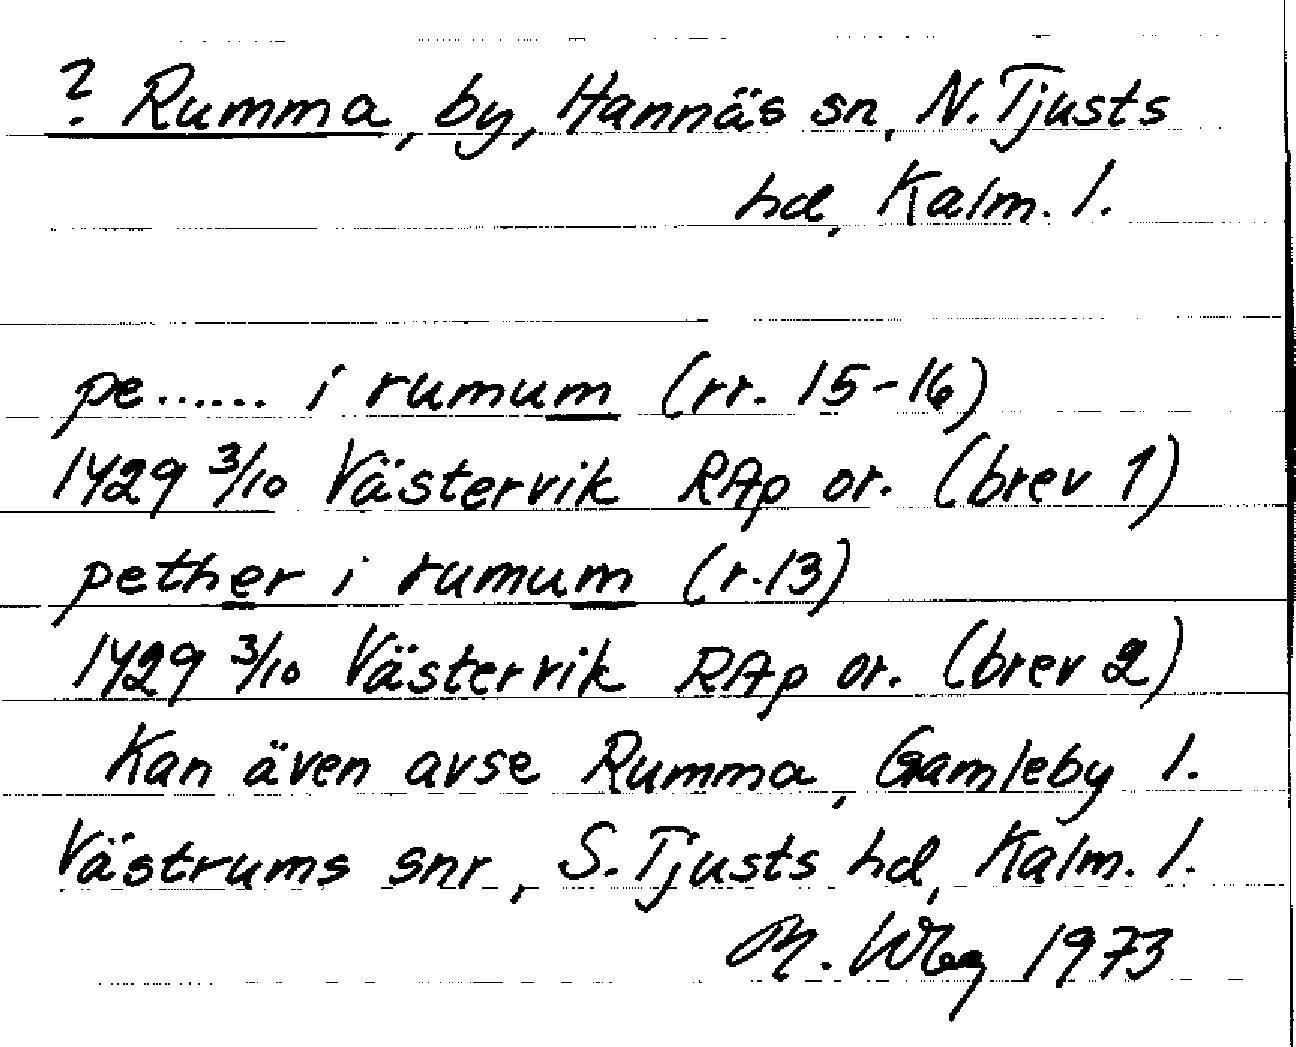 ? Rumma, by, Hannäs sn, N. Tjusts
hd, Kalm. l.
pe...... i rumum (rr. 15-16)
1429 3/10 Västervik RAp or. (brev 1)
pether i rumum (r. 13)
1429 3/10 Västervik RAp or. (brev 2)
Kan även avse Rumma, Gamleby l.
Västrums snr, S. Tjusts hd, Kalm. l.
1973